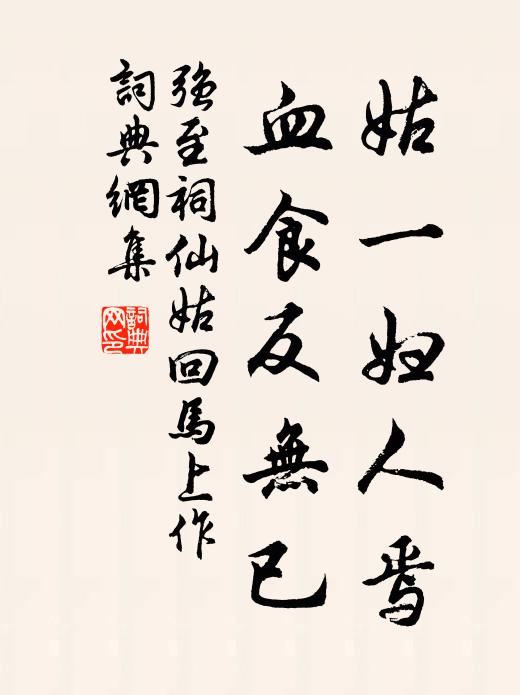 姑一妇人焉
血食反無已
强至祠仙姑回馬上作
詞典網集
詞典網印